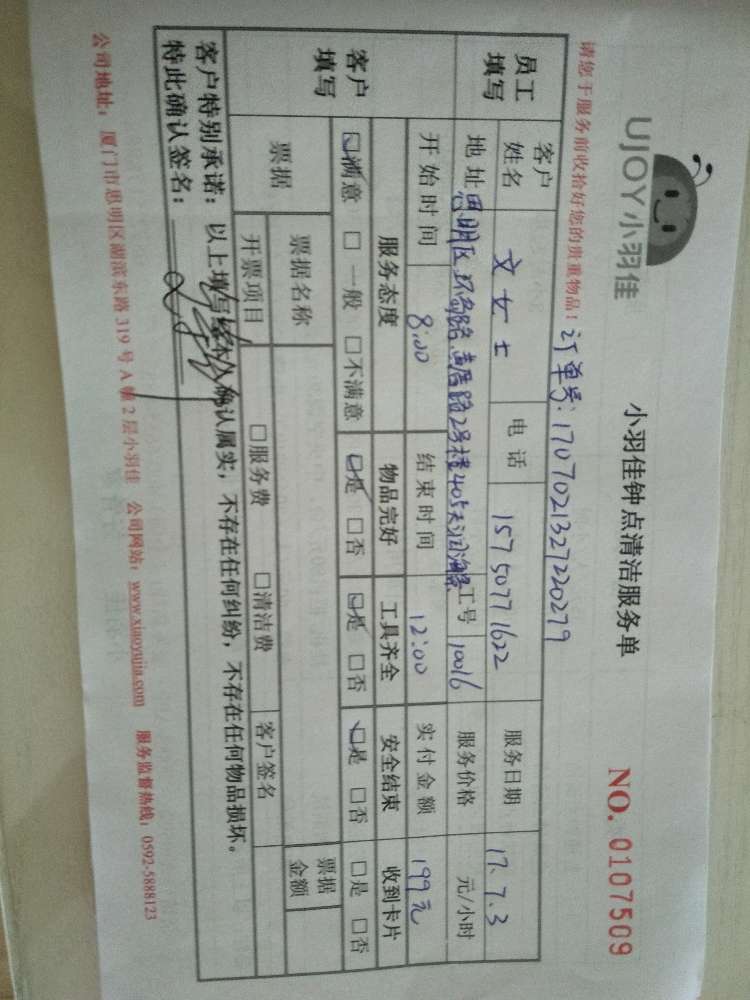 UJOY小羽佳
小羽佳钟点清洁服务单
NO. 0107509
请您于服务前收拾好您的贵重物品！ 订单号：1707021327220279
员工填写 客户姓名 文女士 电话 15750771622 服务日期 17.7.3
地址 思明区 路2号楼405 工号 10016 服务价格 元/小时
开始时间 8:00 结束时间 12:00 实付金额 199元
客户填写 服务态度 物品完好 工具齐全 安全结束 收到卡片
☑满意 □一般 □不满意 ☑是 □否 ☑是 □否 ☑是 □否 □是 □否
票据 票据名称 票据金额
开票项目 □服务费 □清洁费 客户签名
客户特别承诺：以上填写经本人确认属实，不存在任何纠纷，不存在任何物品损坏。
特此确认签名：
公司地址：厦门市思明区湖滨东路319号A幢2层小羽佳 公司网站：www.xiaoyujia.com 服务监督热线：0592-5888123